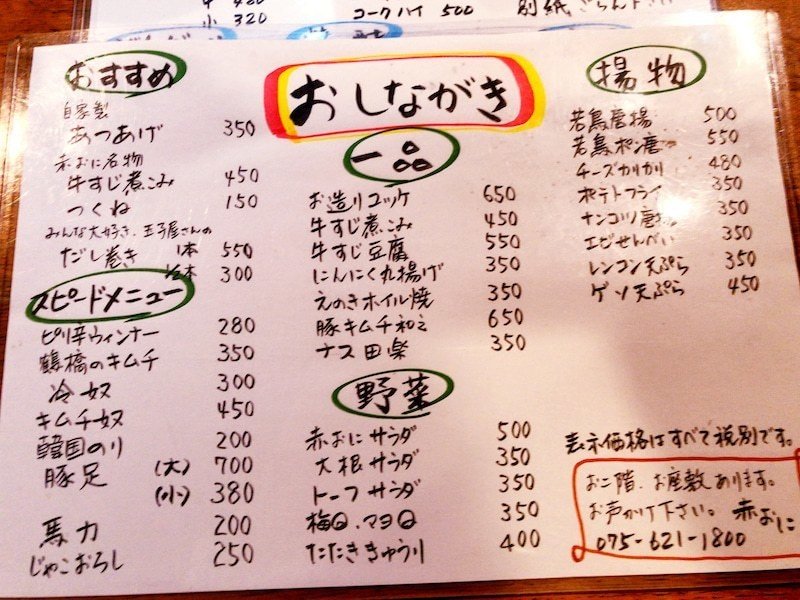 小 320
コークハイ 500
別紙ごらん下さい
おしながき
おすすめ
自家製
あつあげ 350
赤おに名物
牛すじ煮こみ 450
つくね 150
みんな大好き、玉子屋さんの
だし巻き 1本 550
1/2本 300
スピードメニュー
ピリ辛ウィンナー 280
鶴橋のキムチ 350
冷奴 300
キムチ奴 450
韓国のり 200
豚足 (大) 700
(小) 380
馬力 200
じゃこおろし 250
一品
お造りユッケ 650
牛すじ煮こみ 450
牛すじ豆腐 550
にんにく丸揚げ 350
えのきホイル焼 350
豚キムチ和え 650
ナス田楽 350
野菜
赤おにサラダ 500
大根サラダ 350
トーフサラダ 350
梅Q、マヨQ 350
たたききゅうり 400
揚物
若鳥唐揚 500
若鳥ポン唐 550
チーズカリカリ 480
ポテトフライ 350
ナンコツ唐揚 350
エビせんべい 350
レンコン天ぷら 350
ゲソ天ぷら 450
表示価格はすべて税別です。
お二階、お座敷あります。
お声かけ下さい。赤おに
075-621-1800